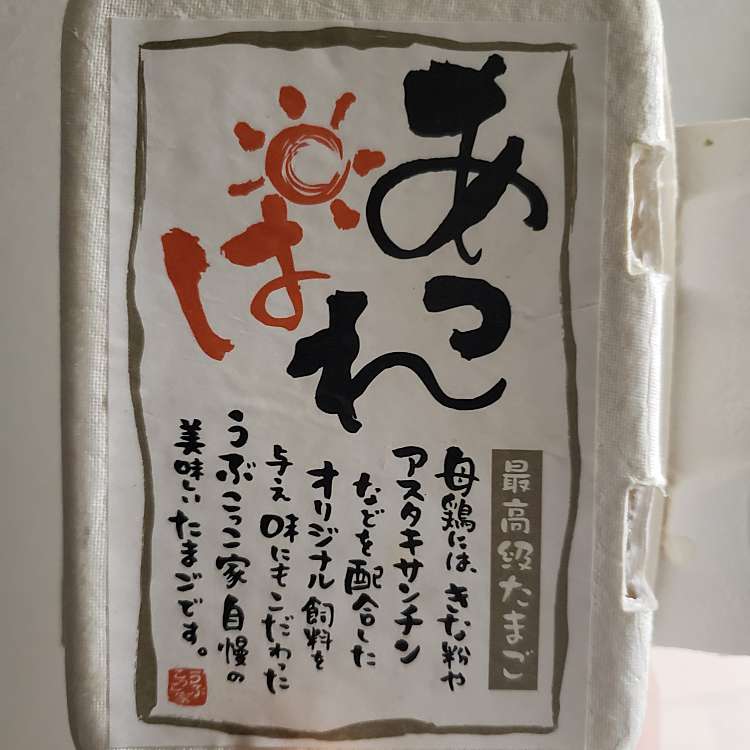 あっぱれ
最高級たまご
母鶏には、きな粉や
アスタキサンチン
などを配合した
オリジナル飼料を
与え味にもこだわった
うぶこっこ家自慢の
美味しいたまごです。